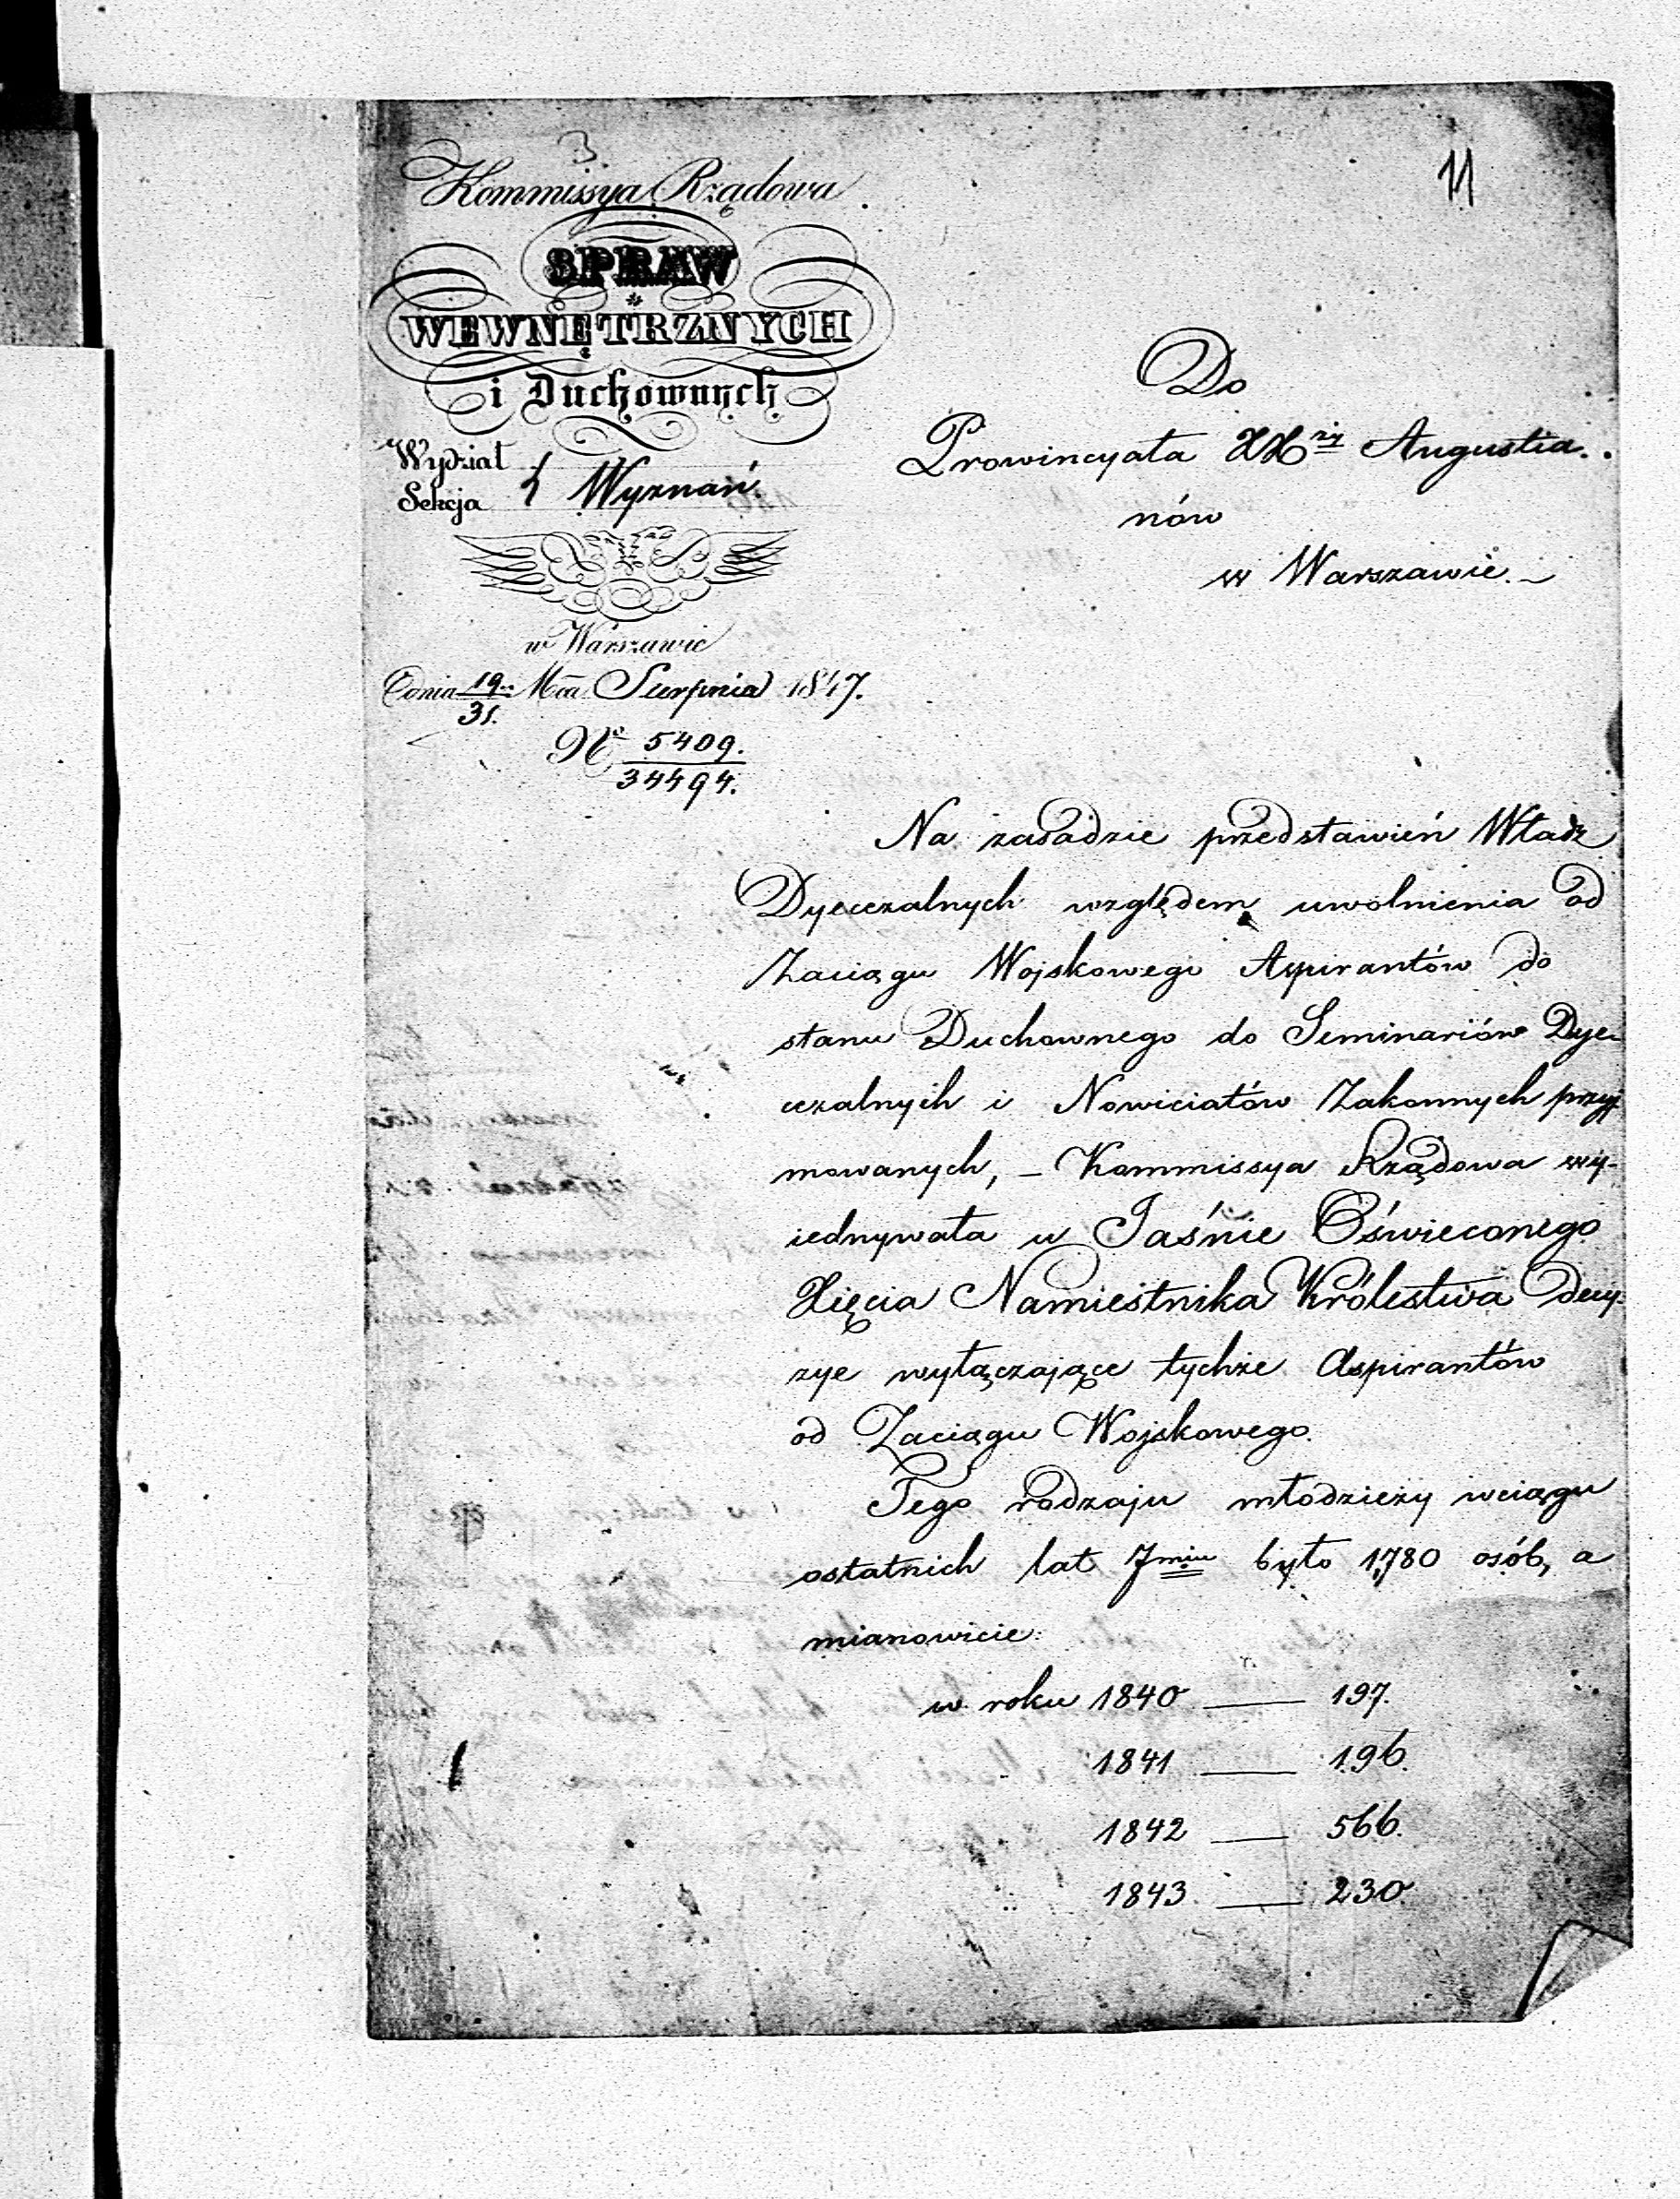 3.
11
Kommissya Rządowa
SPRAW
WEWNĘTRZNYCH
i Duchownych
Wydział
Sekcja } Wyznań.
w Warszawie
dnia 19/31. Mca Sierpnia 1847.
No 5409.
34494.
Do
Prowincyała XX Augustia-
nów
w Warszawie.
Na zasadzie przedstawień Władz
Dyecezalnych względem uwolnienia od
Zaciągu Wojskowego Aspirantów do
stanu Duchownego do Seminariów Dye-
cezalnych i Nowiciatów Zakonnych przyj
mowanych, – Kommissya Rządowa wy-
iednywała u Jaśnie Oświeconego
Xięcia Namiestnika Królestwa decy-
zye wyłączające tychże Aspirantów
od Zaciągu Wojskowego.
Tego rodzaju młodzieży wciągu
ostatnich lat 7miu było 1780 osób, a
mianowicie:
w roku 1840 — 197.
1841 — 196.
1842 — 566.
1843 — 230.